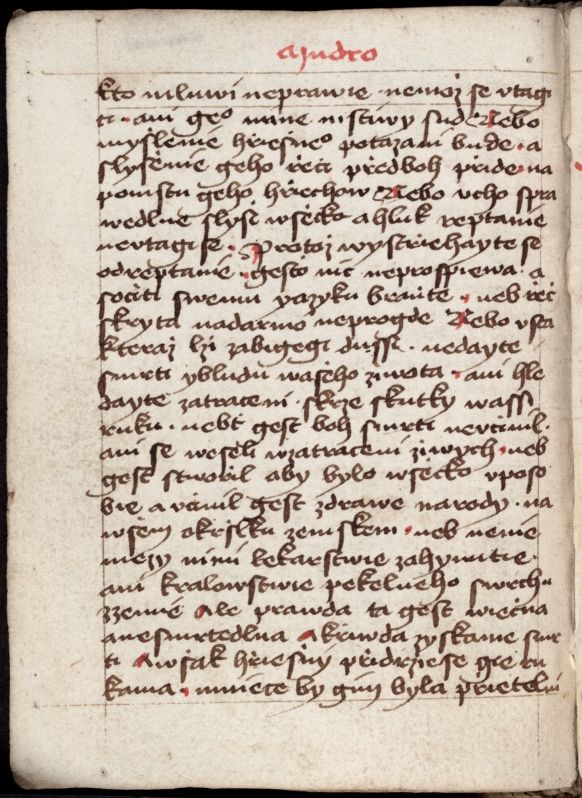 a Mudro
kto mluwi neprawie nemoz se vtagi
ti · ani geº mine mstiwy sud Nebo
myslenie hrziesneº potazani bude · a
slyssenie geho rzeci przedboh przide na
pomstu geho hrziechow Nebo vcho spra
wedlne slysi wssecko a hluk reptanie
nevtagi se · Protoz wystrziehayte se
odreptanie · gesto nic neprospiewa · a
sociti swemu yazyku brante · neb rzecz
skryta nadarmo neprogde Nebo vsta
kteraz lzi zabigegi dussi · nedayte
smrti ybludu wasseho ziwota · ani hle
dayte zatraceni · skrze skutky wassi
ruku · nebt gest boh smrti nevcinil ·
ani se weseli wzatraceni ziwych · neb
gest stworil aby bylo wssecko vposo
bie a vcinil gest zdrawe narody · na
wsem okrslku zemskem · neb nenie
mezy nimi lekarstwie zahynutie ·
ani kralowstwie pekelneho swrch
zzemie Ale prawda ta gest wiecna
a nesmrtedlna A krziwda zyskanie smr
ti A wsak hrziesny przidrzie se gie ru
kama · mniece by gim byla przietelni